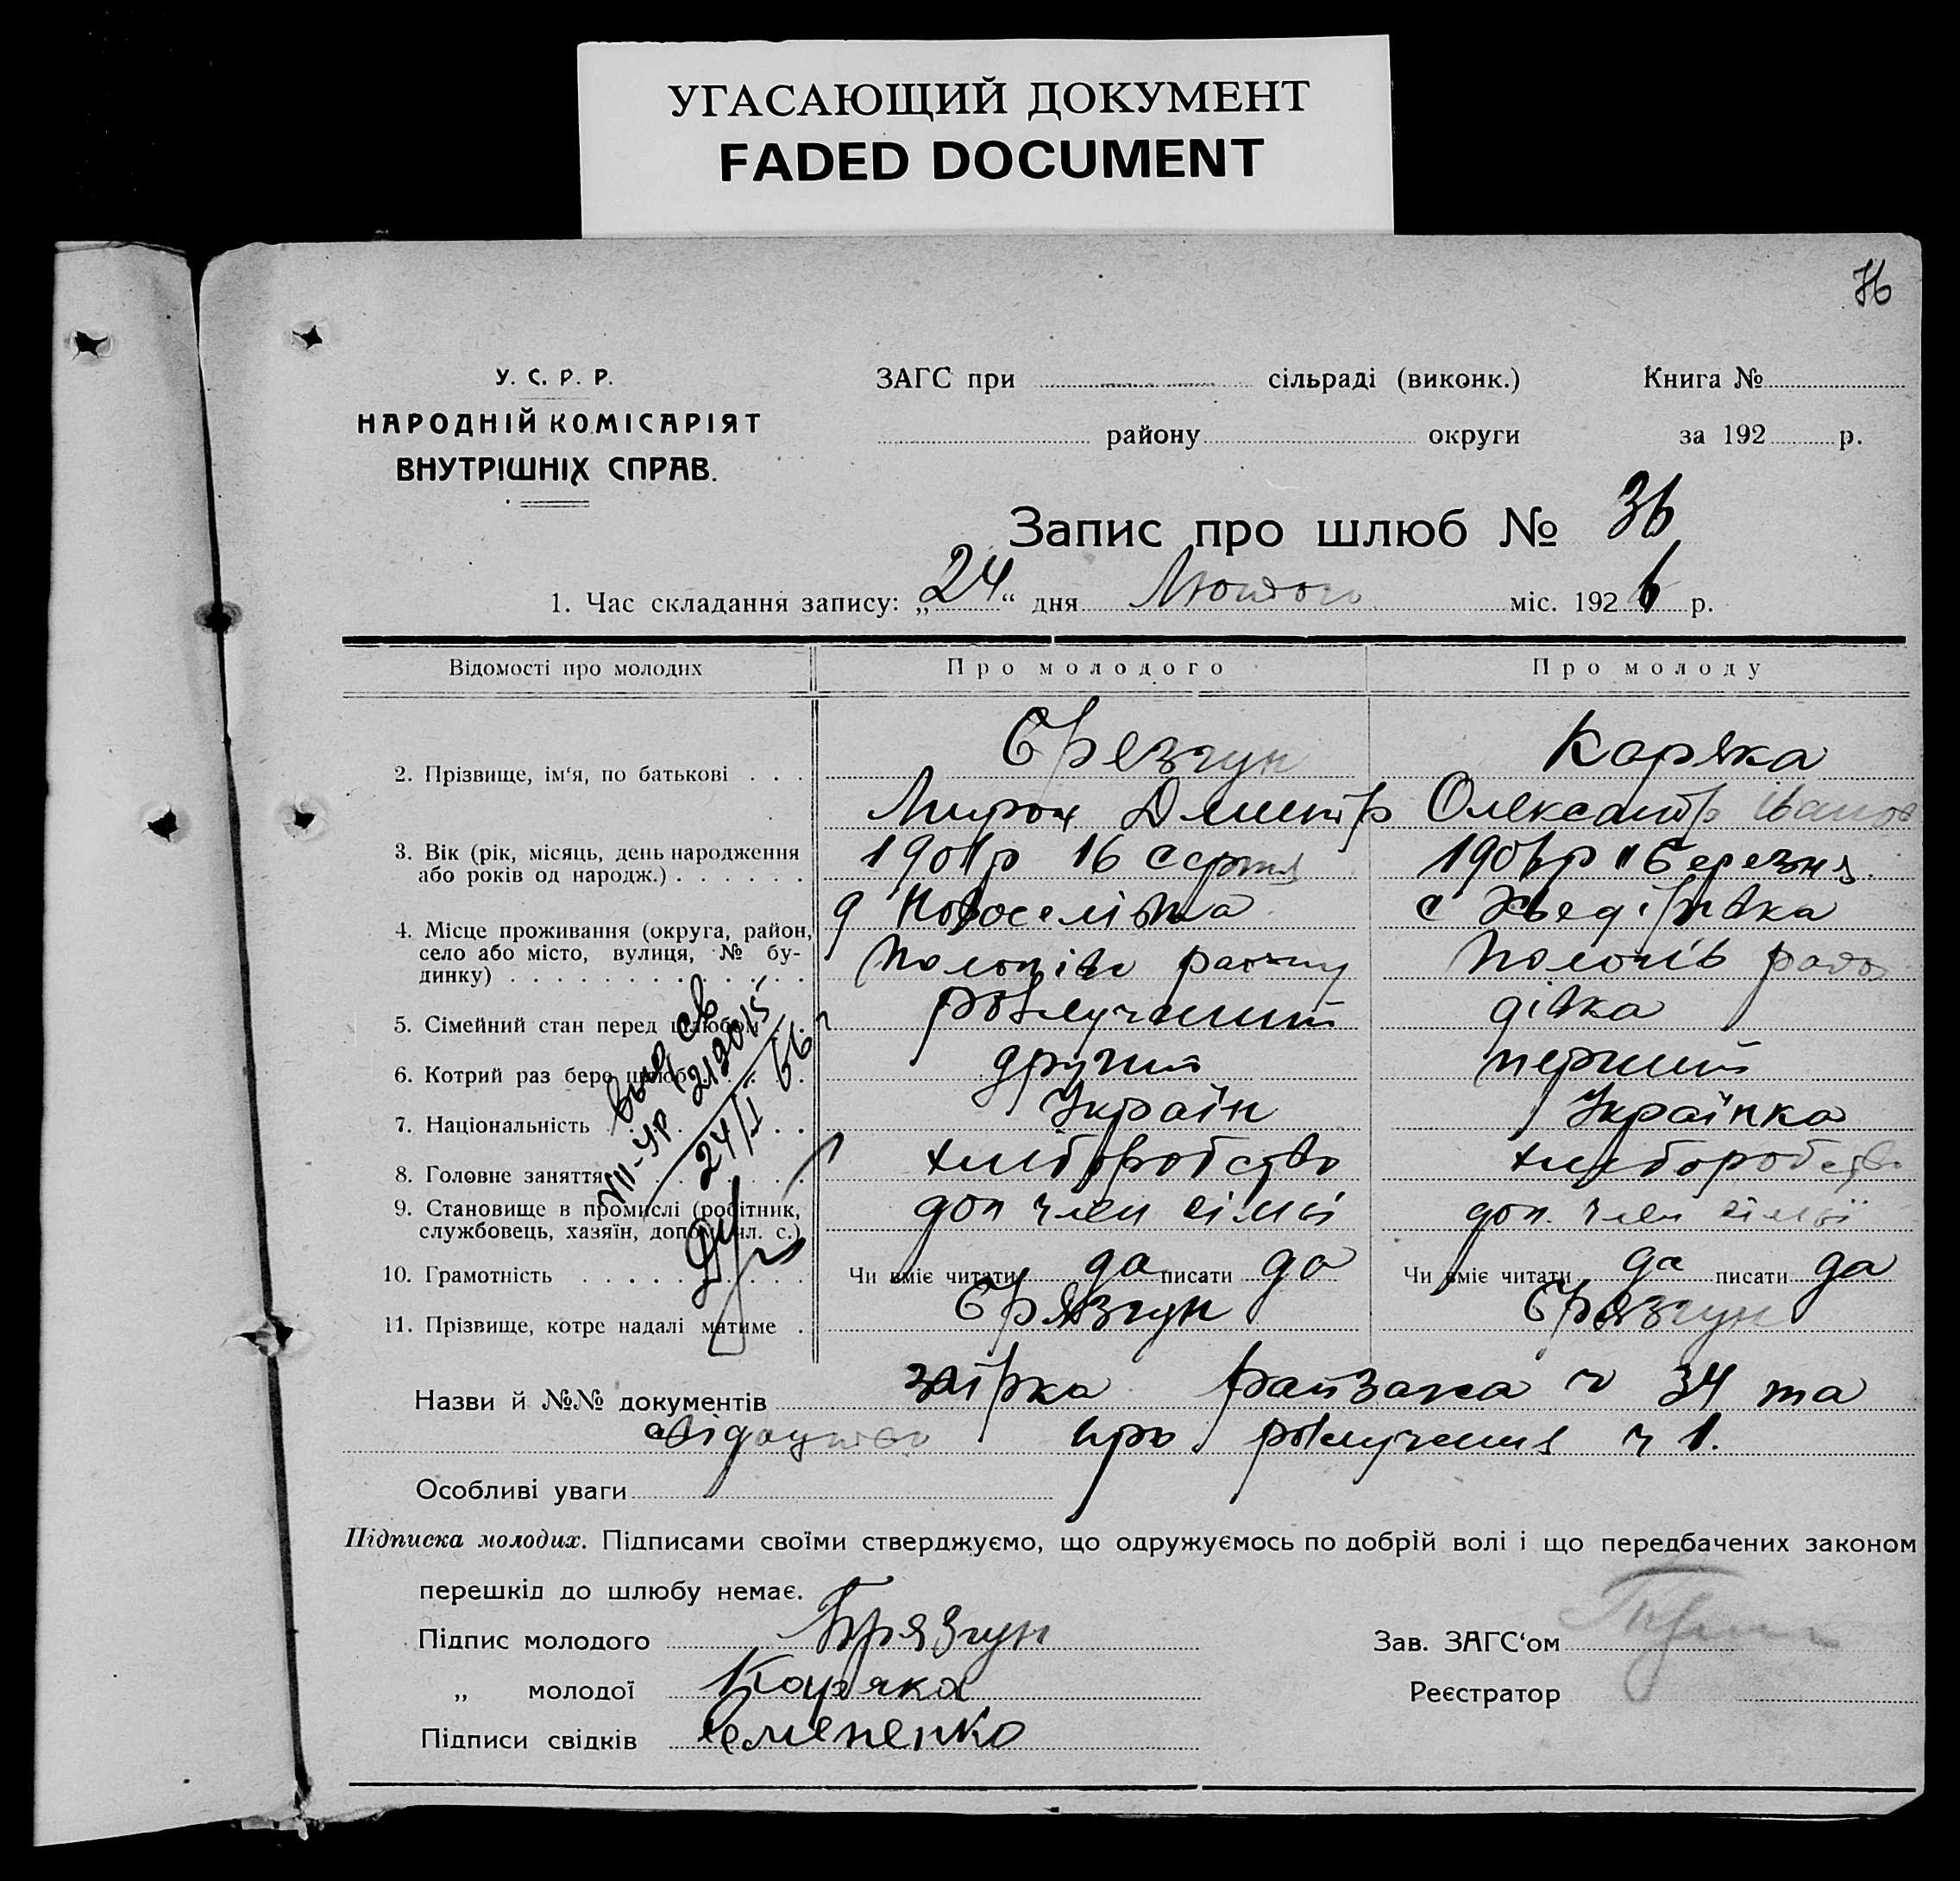 УГАСАЮЩИЙ ДОКУМЕНТ
FADED DOCUMENT
У. С. Р. Р.
НАРОДНІЙ КОМІСАРІЯТ
ВНУТРІШНІХ СПРАВ.
ЗАГС при сільраді (виконк.) Книга №
району округи за 192 р.
Запис про шлюб № 36
1. Час складання запису: „24“ дня Лютого міс. 1926 р.
Відомості про молодих Про молодого Про молоду
2. Прізвище, ім‘я, по батькові . . . Брезгун Каряка
Мирон Дмитр Олександр Іванов
3. Вік (рік, місяць, день народження 16 Серпня Березня
або років од народж.) . . . . . .
4. Місце проживання (округа, район, Новоселівка с
село або місто, вулиця, № бу- району Пологів
динку) . . . . . . . . . . . . .
5. Сімейний стан перед шлюбом розлучений дівка
6. Котрий раз бере шлюб другий перший
7. Національність Україн Українка
8. Головне заняття хліборобство хліборобство
9. Становище в промислі (робітник, доп член сімьї доп. член сімьї
службовець, хазяїн, допом. чл. с.)
10. Грамотність Чи вміє читати да писати да Чи вміє читати да писати да
11. Прізвище, котре надалі матиме . Брязгун Брязгун
VIII-УР 219015
24/I 66
Назви й №№ документів ч 34 та
свідоцтво про розлучення ч 1.
Особливі уваги
Підписка молодих. Підписами своїми стверджуємо, що одружуємось по добрій волі і що передбачених законом
перешкід до шлюбу немає.
Підпис молодого Брязгун Зав. ЗАГС‘ом
„ молодої Каряка Реєстратор
Підписи свідків Семененко